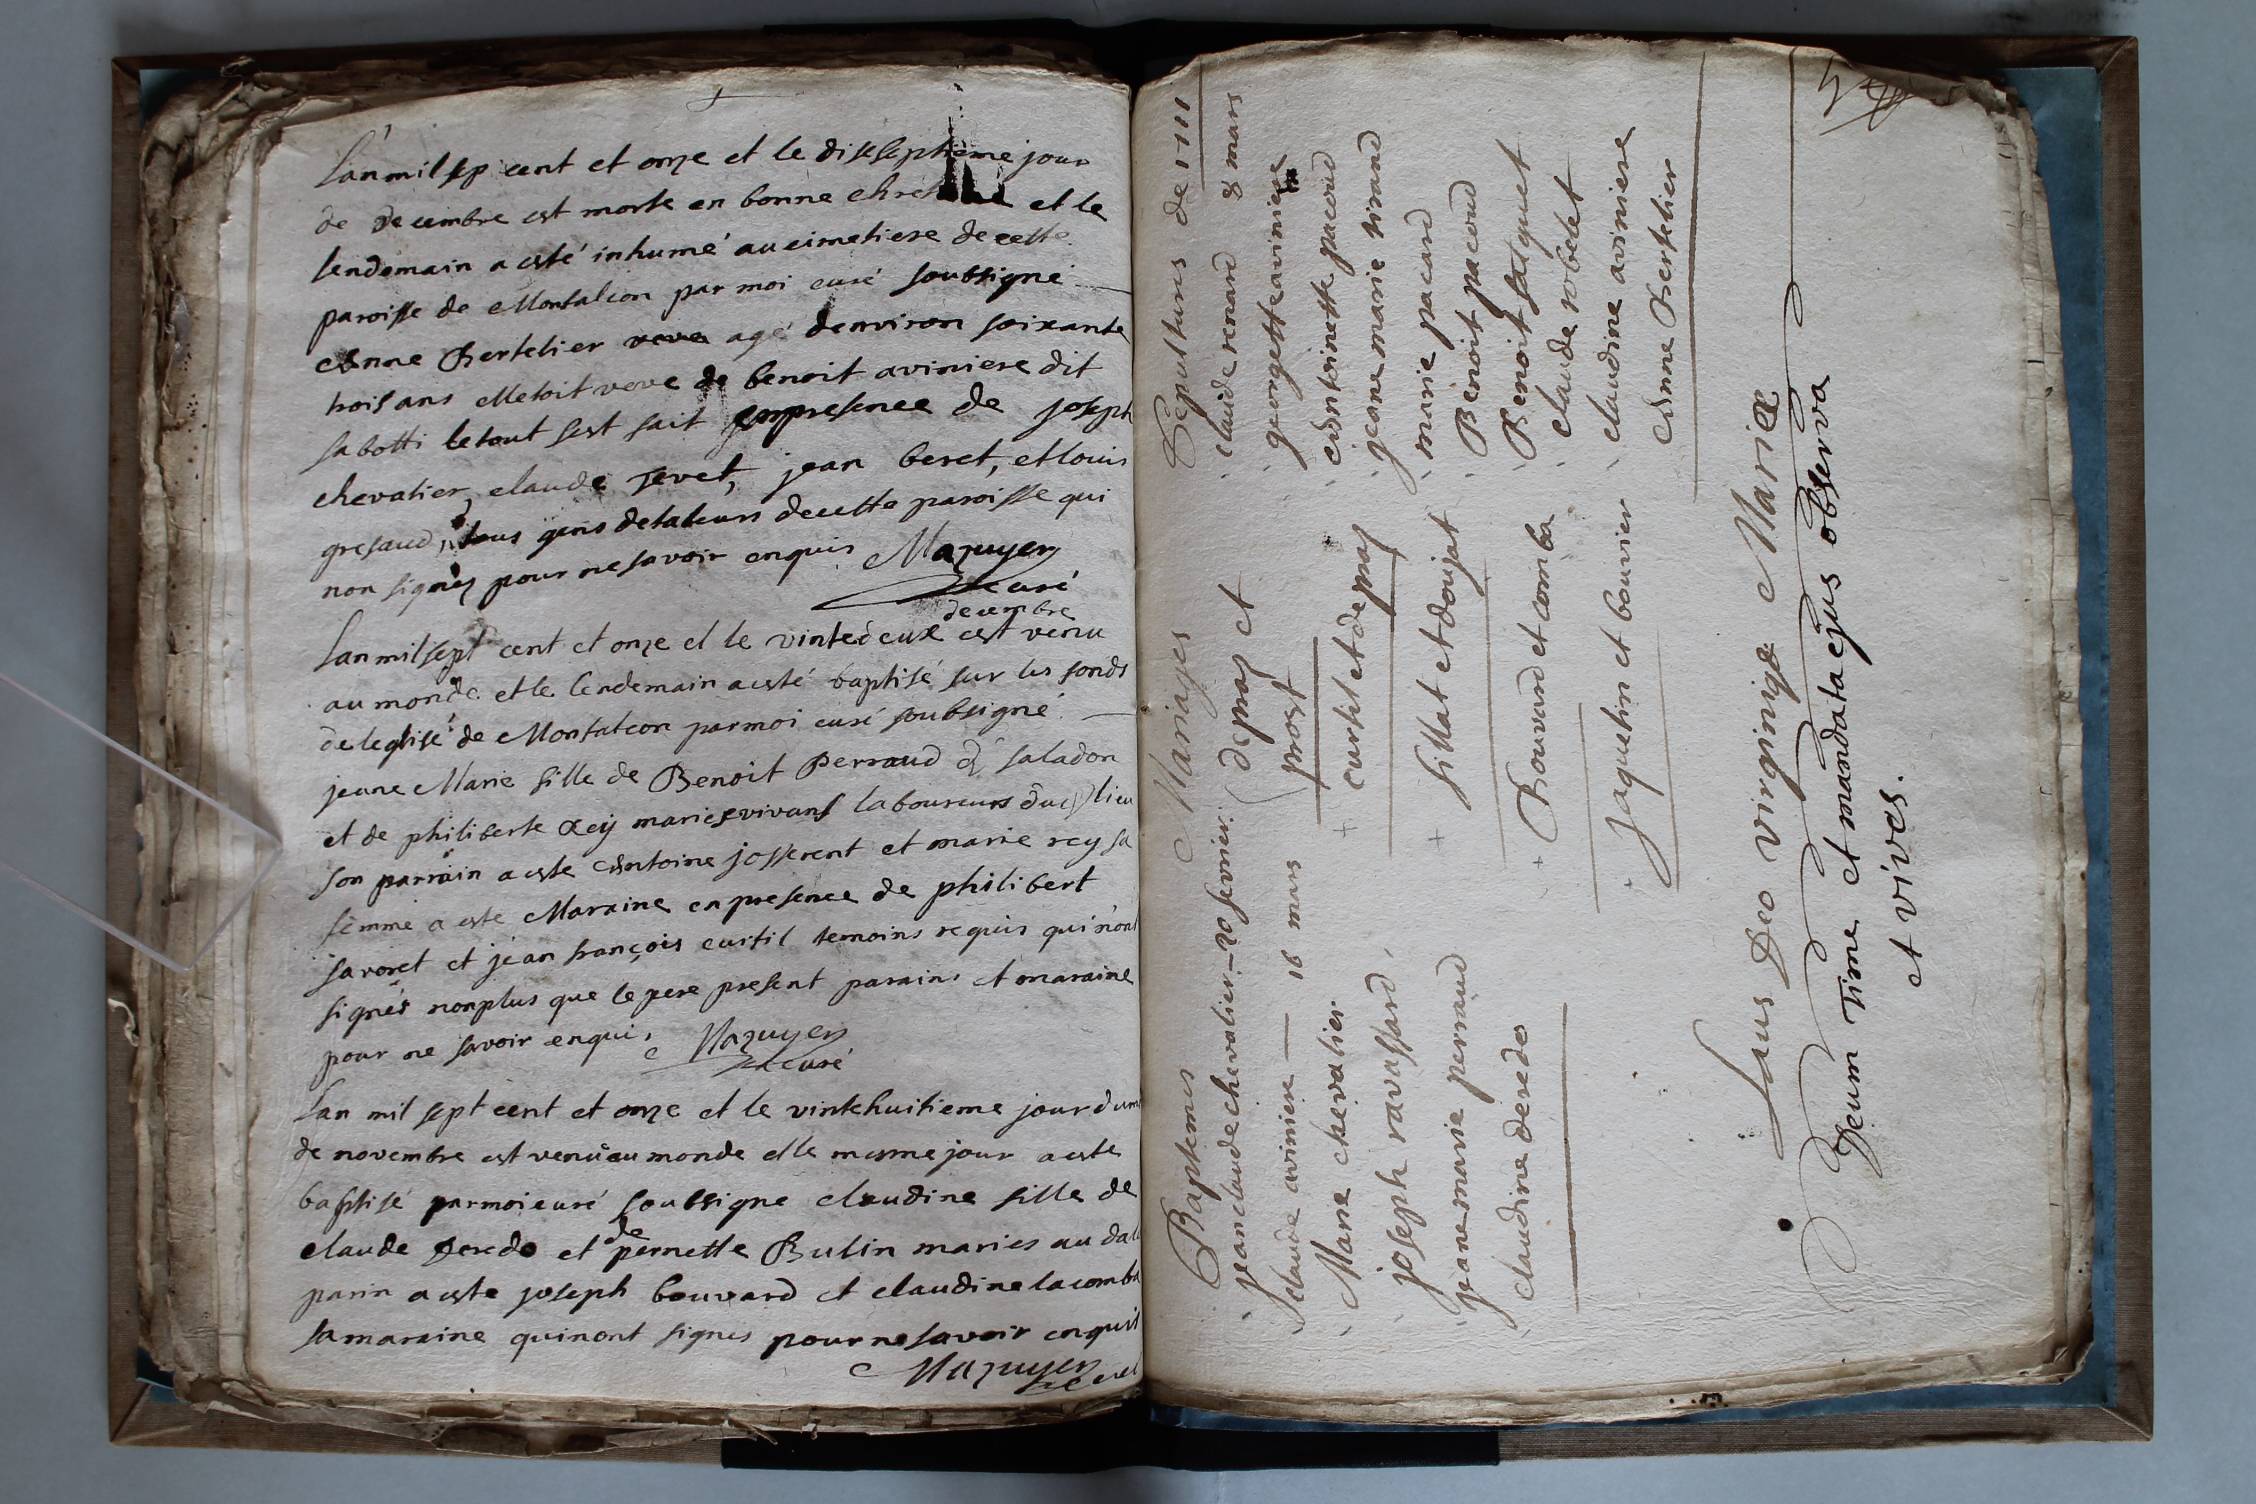 Lan mil sep cent et onze et le diseseptieme jour
de decembre est morte en bonne et le
lendemain a esté inhumé au cimetiere de cette
paroisse de Monfalcon par moi curé soubsigné
Anne Bertelier veve agé denviron soixante
trois ans elletoit veve de benoit aviniere dit
sabotti le tout sest fait enpresence de joseph
chevalier, claude jevet, jean beret, et louis
gresaud, tous gens delabeurs decette paroisse qui
non signés pour ne savoir enquis Mazuyer
curé
decembre
Lan mil sept cent et onze et le vintedeuxe est venu
au monde et le lendemain a esté baptisé sur les fonds
de leglise de Monfalcon par moi curé soubsigné
jeane Marie fille de Benoit Perraud de saladon
et de philiberte Rey mariés vivans laboureurs dud lieu
son parrain a este Antoine josserent et marie rey sa
femme a este Maraine en presence de philibert
favoret et jean françois curtil temoins requis qui nont
signés nonplus que le pere present parains et maraine
pour ne savoir enquis Mazuyer
curé
Lan mil sept cent et onze et le vintehuitieme jour du
de novembre est venu au monde et le mesme jour a este
baptisé par moi curé soubsigne claudine fille de
claude deredo et de pernette Bulin maries au
parin a este joseph bouvard et claudine lacomba
sa maraine qui nont signes pour ne savoir enquis
Mazuyer
curé
Baptemes
jean claude chevalier – 20 fevrier
claude aviniere — 16 mars
Marie chevalier
joseph ravassard
jeane marie perraud
claudine deredo
Mariages
depras et
prost
+ curtil et depras
+ fillat et doujat
+ Bouvard et comba
jaquelin et bouvier
Sepultures de 1711
claude renard 8 mars
georgette aviniere
Antoinette pacoud
jeane marie tirand
marie pacard
Benoit pacoud
Benoit
claude robelet
claudine aviniere
Anne Bertelier
Laus Deo virginique Mariæ
Deum Time et mandata ejus observa
et vives.